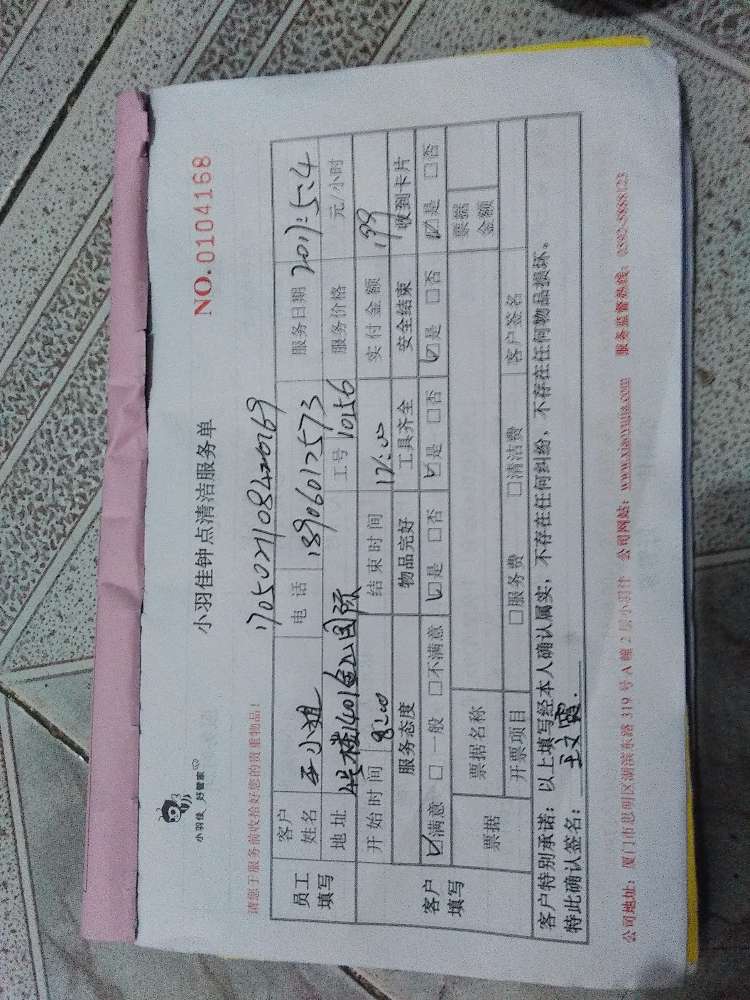 小羽佳 好管家
小羽佳钟点清洁服务单
NO.0104168
请您于服务前收拾好您的贵重物品!
员工填写 客户姓名 王小姐 电话 18906012573 服务日期 2017:5:4
地址 1401 国际 工号 1056 服务价格 元/小时
开始时间 8:00 结束时间 12:00 实付金额 199
客户填写 服务态度 物品完好 工具齐全 安全结束 收到卡片
☑满意 □一般 □不满意 ☑是 □否 ☑是 □否 ☑是 □否 ☑是 □否
票据 票据名称 票据金额
开票项目 □服务费 □清洁费 客户签名
客户特别承诺:以上填写经本人确认属实,不存在任何纠纷,不存在任何物品损坏。
特此确认签名:
公司地址:厦门市思明区湖滨东路 319 号 A 幢 2 层小羽佳 公司网站:www.xiaoyujia.com 服务监督热线:0592-8888123